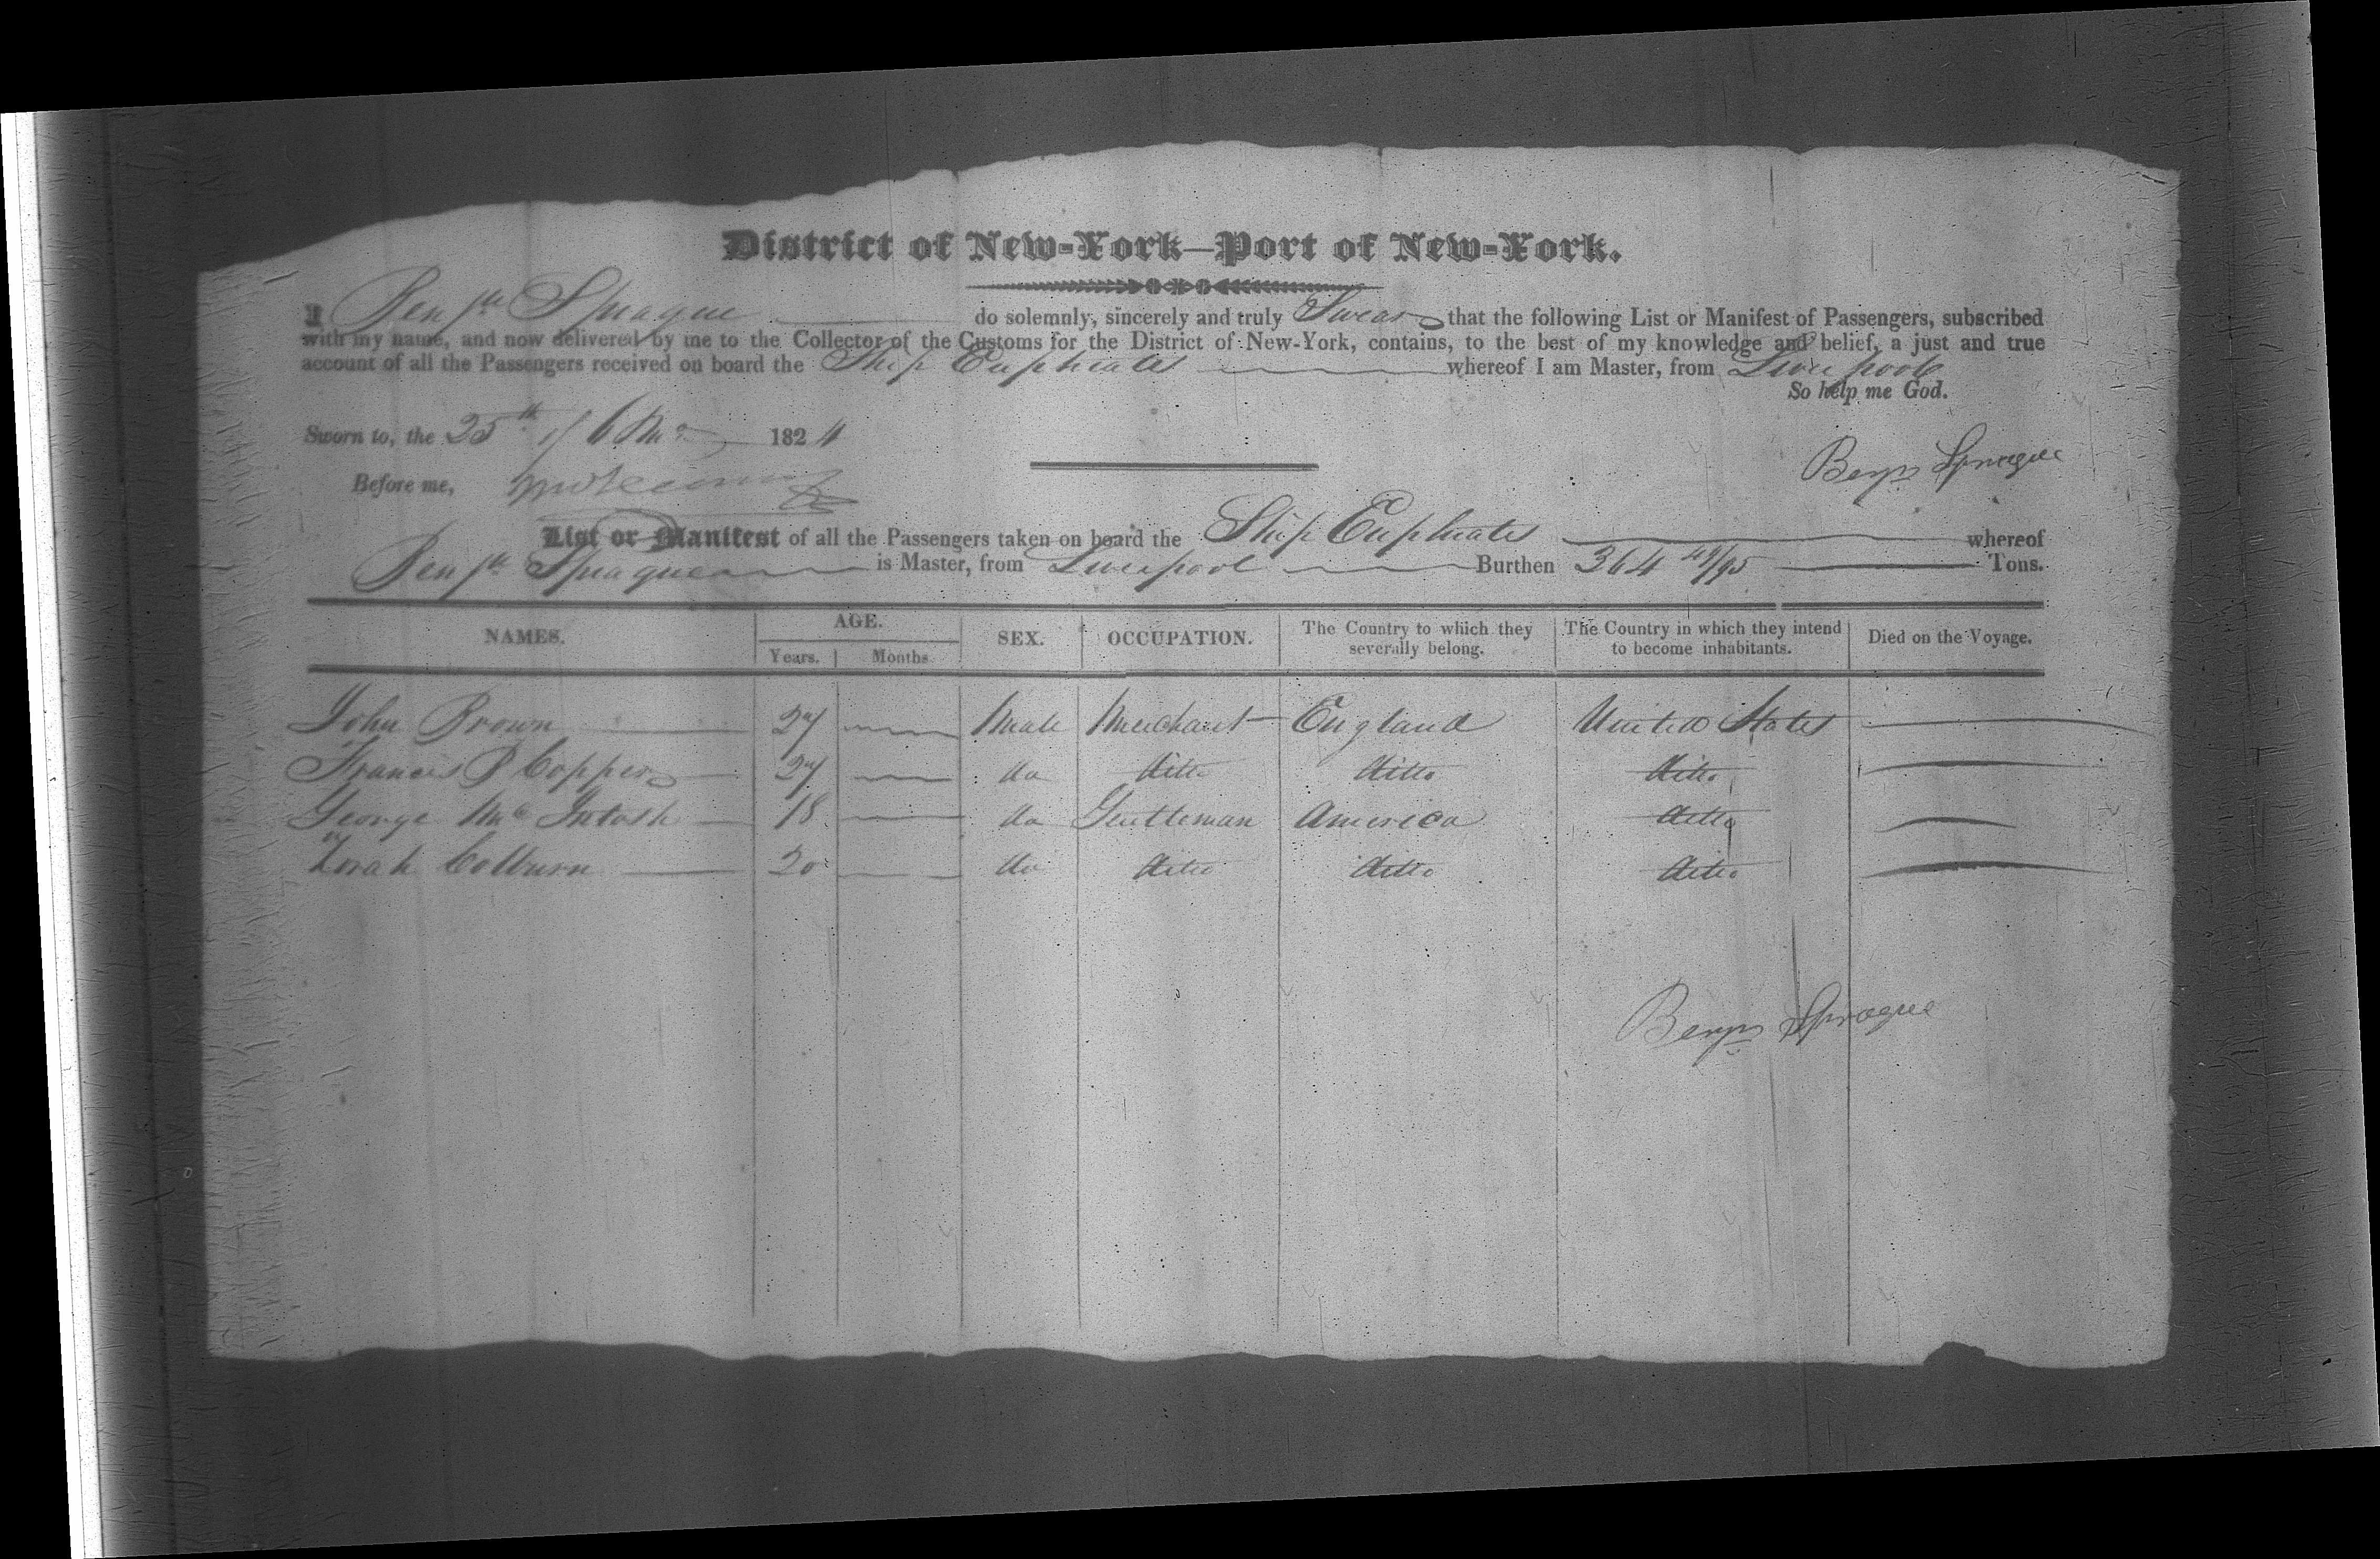 District of New-York—Port of New-York.
I Benjn Sprague do solemnly, sincerely and truly Swear that the following List or Manifest of Passengers, subscribed
with my name, and now delivered by me to the Collector of the Customs for the District of New-York, contains, to the best of my knowledge and belief, a just and true
account of all the Passengers received on board the Ship Euphrates whereof I am Master, from Liverpool
So help me God.
Sworn to, the 25th of 6 Mo 1824
Benjn Sprague
Before me,
List or Manifest of all the Passengers taken on board the Ship Euphrates whereof
Benjn Sprague is Master, from Liverpool Burthen 364 49/95 Tons.
NAMES. AGE. SEX. OCCUPATION. The Country to which they severally belong. The Country in which they intend to become inhabitants. Died on the Voyage.
Years. Months
John Brown 27 Male Merchant England United States
Francis P Copper 27 do ditto ditto ditto
George McIntosh 18 do Gentleman America ditto
Zerah Colburn 20 do ditto ditto ditto
Benjn Sprague